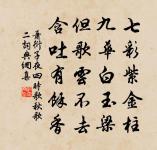 七彩紫金柱
九華白玉梁
但歌雲不去
含吐有餘香
蕭衍子夜四時歌秋歌
二詞典網集